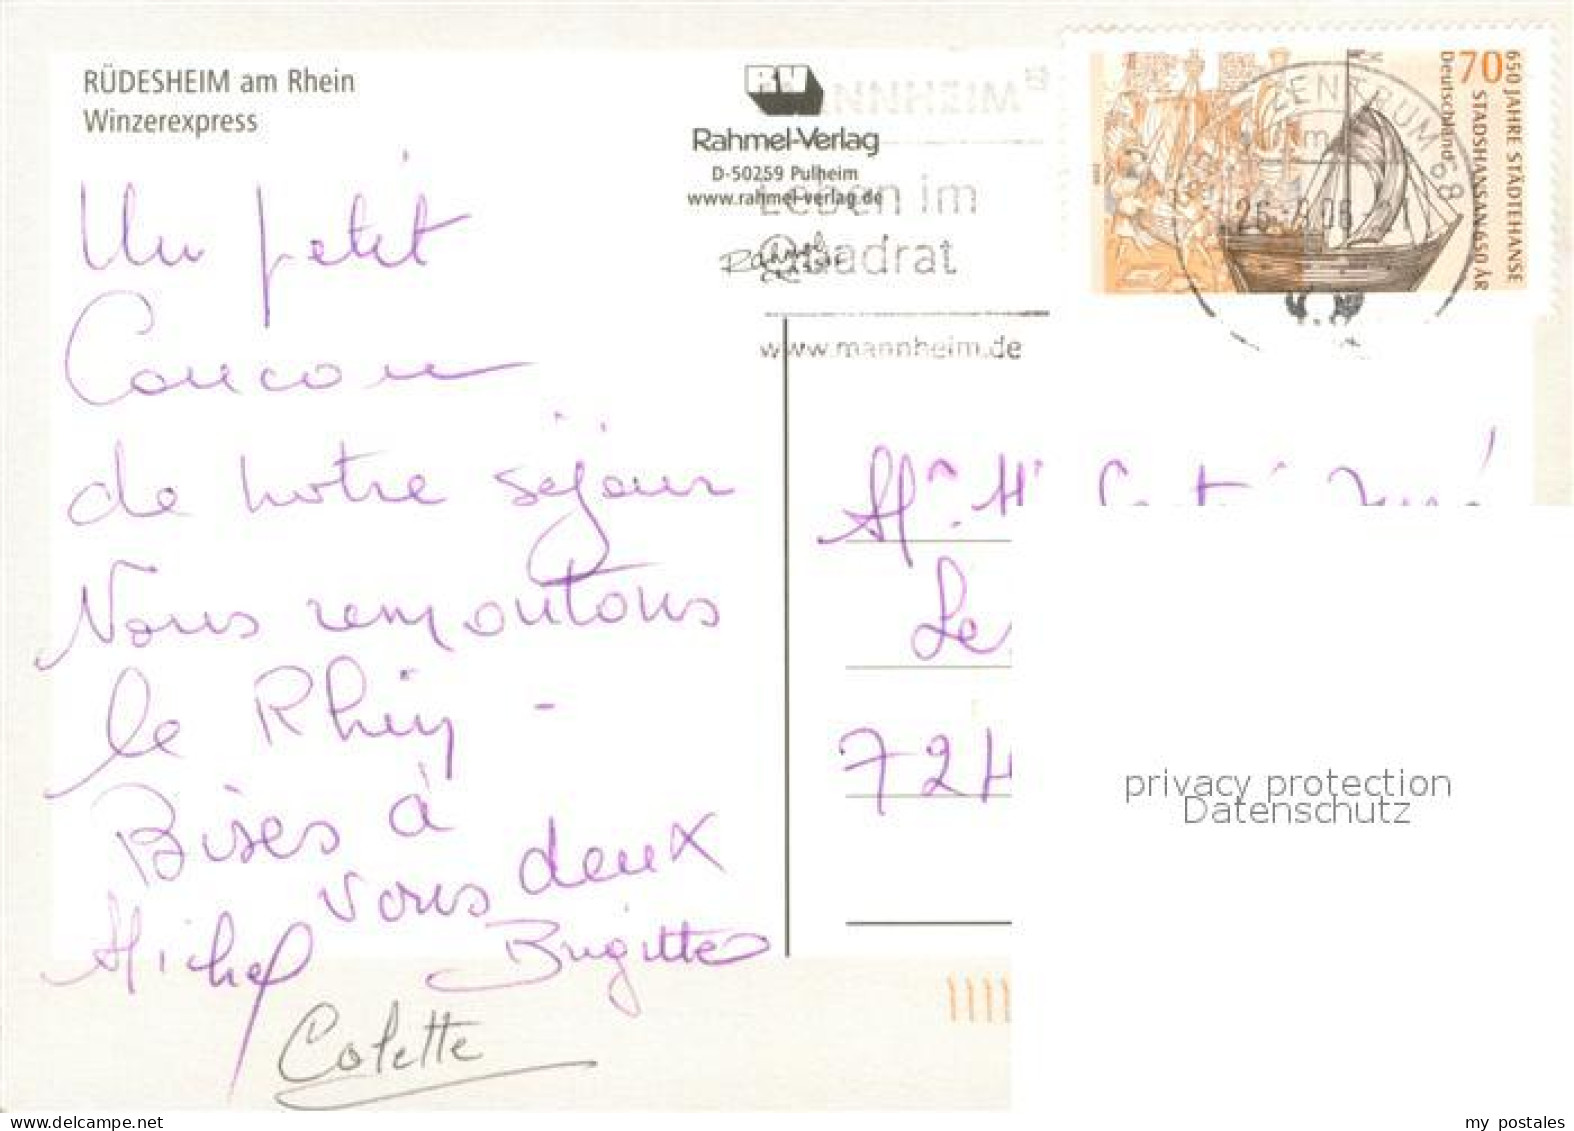 RÜDESHEIM am Rhein
Winzerexpress
Rahmel-Verlag
D-50259 Pulheim
www.rahmel-verlag.de
Leben im
Quadrat
www.mannheim.de
70
Deutschland
650 JAHRE STÄDTEHANSE
STADSHANSAN 650 ÅR
BRIEFZENTRUM 68
Un petit
Coucou
de notre séjour
Nous remontons
le Rhin -
Bises à
vous deux
Michel Brigitte
Colette
Mr. M
Le
724
privacy protection
Datenschutz
my postales